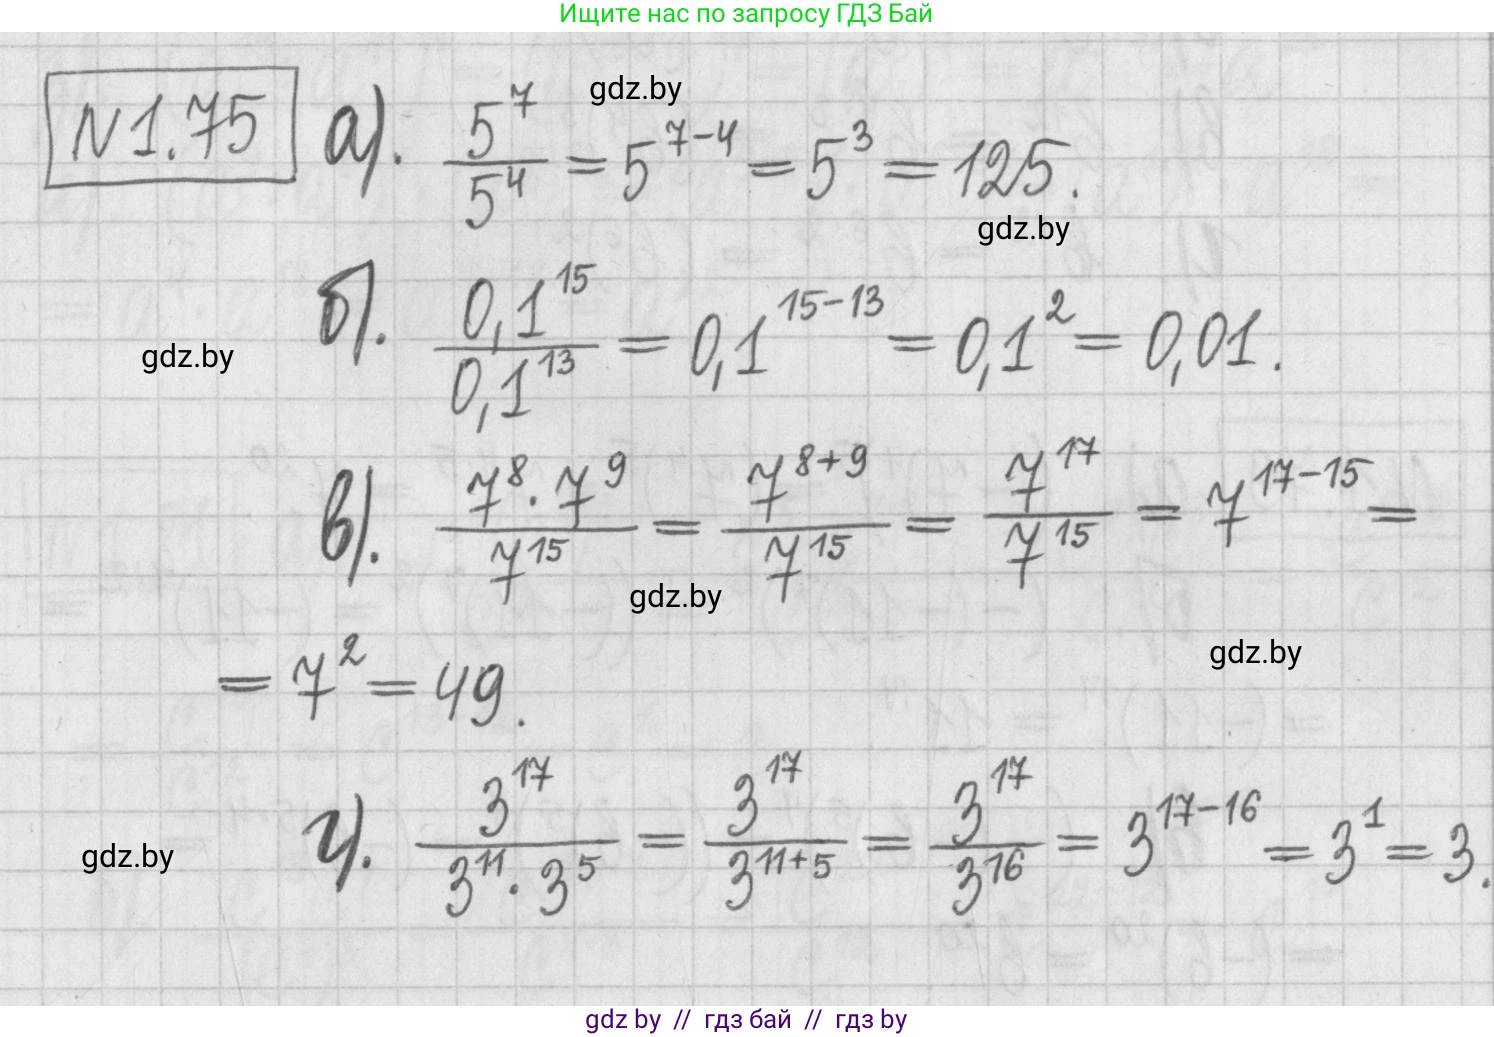 Ищите нас по запросу ГДЗ Бай
gdz.by
N1.75 а). 5^7/5^4 = 5^(7-4) = 5^3 = 125.
gdz.by
б). 0,1^15/0,1^13 = 0,1^(15-13) = 0,1^2 = 0,01.
gdz.by
в). (7^8 · 7^9)/7^15 = 7^(8+9)/7^15 = 7^17/7^15 = 7^(17-15) =
gdz.by
gdz.by
= 7^2 = 49.
г). 3^17/(3^11 · 3^5) = 3^17/3^(11+5) = 3^17/3^16 = 3^(17-16) = 3^1 = 3.
gdz.by
gdz by // гдз бай // гдз by